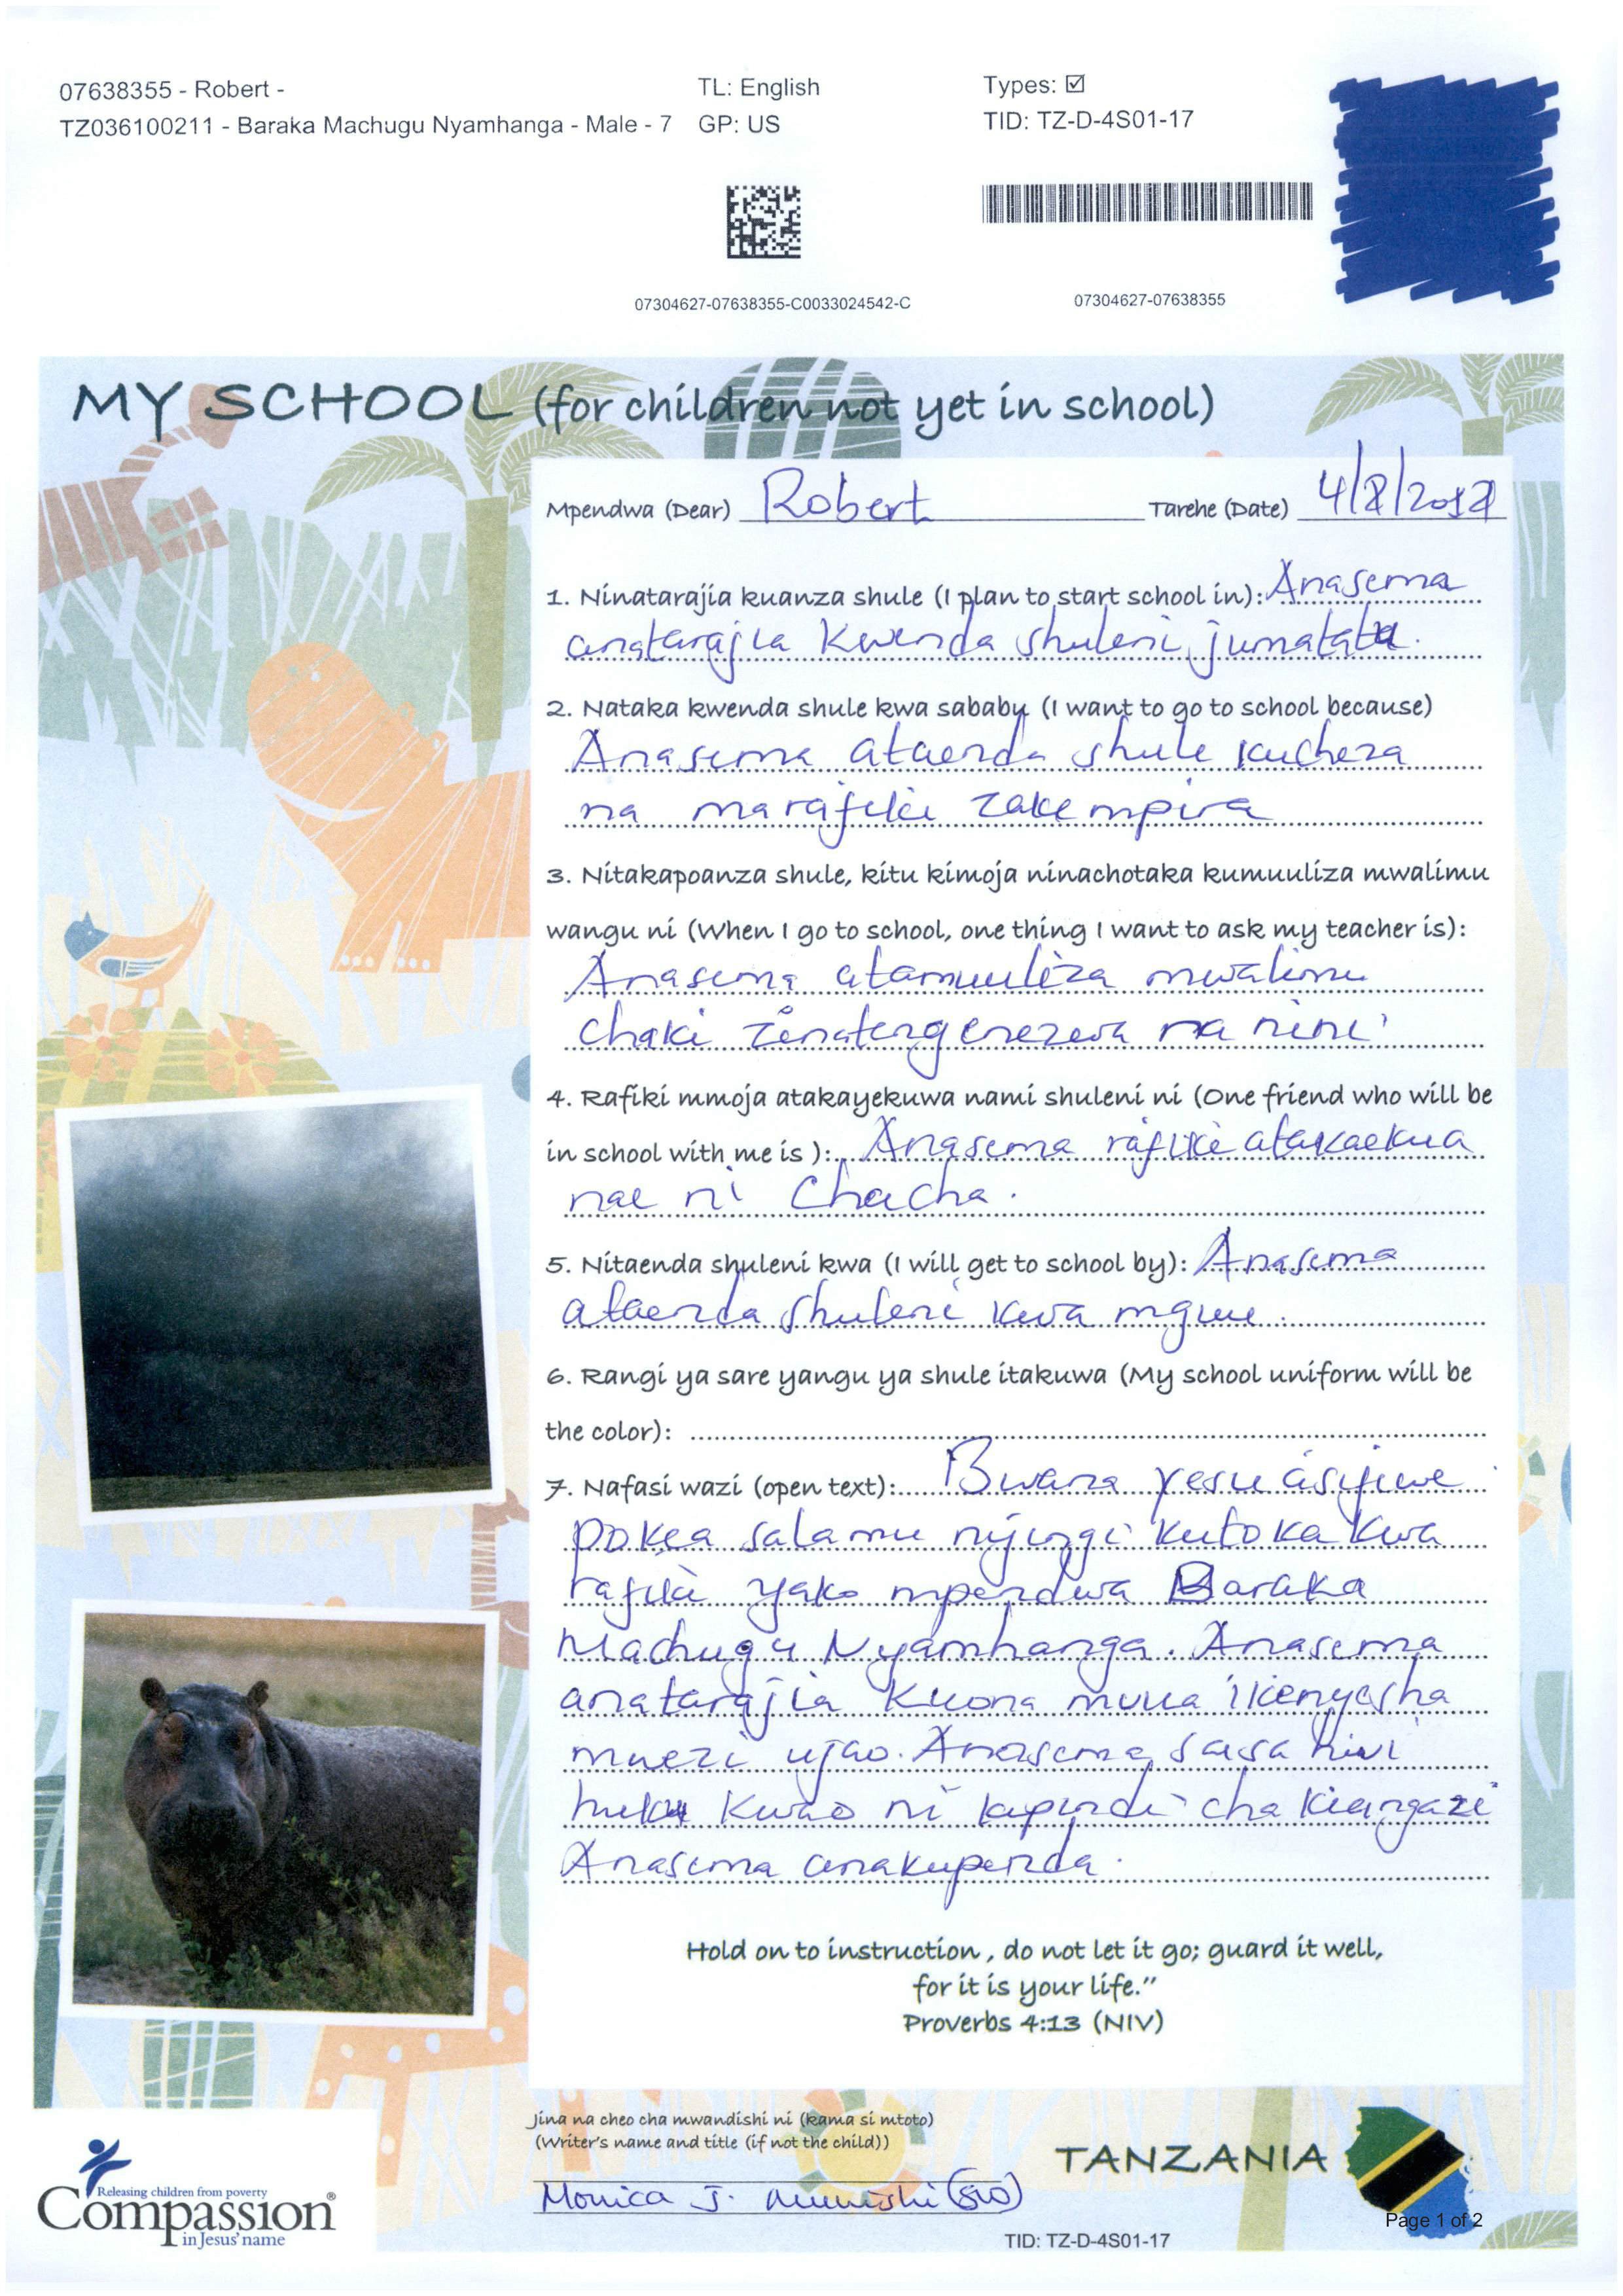 07638355 - Robert -
TZ036100211 - Baraka Machugu Nyamhanga - Male - 7
TL: English
GP: US
Types: ☑
TID: TZ-D-4S01-17
07304627-07638355-C0033024542-C
07304627-07638355
MY SCHOOL (for children not yet in school)
Mpendwa (Dear) Robert
Tarehe (Date)
1. Ninatarajia kuanza shule (I plan to start school in): Anasema
anatarajia kwenda shuleni jumatatu.
2. Nataka kwenda shule kwa sababu (I want to go to school because)
Anasema ataenda shule kucheza
na marafiki zake mpira
3. Nitakapoanza shule, kitu kimoja ninachotaka kumuuliza mwalimu
wangu ni (When I go to school, one thing I want to ask my teacher is):
Anasema atamuuliza mwalimu
chaki zinatengenezewa na nini
4. Rafiki mmoja atakayekuwa nami shuleni ni (One friend who will be
in school with me is): Anasema rafiki atakaekua
nae ni Chacha.
5. Nitaenda shuleni kwa (I will get to school by): Anasema
ataenda shuleni kwa mguu.
6. Rangi ya sare yangu ya shule itakuwa (My school uniform will be
the color):
7. Nafasi wazi (open text): Bwana Yesu asifiwe
pokea salamu nyingi kutoka kwa
rafiki yako mpendwa Baraka
Machugu Nyamhanga. Anasema
anatarajia kuona mvua ikinyesha
mwezi ujao. Anasema sasa hivi
huku kwao ni kipindi cha kiangazi
Anasema anakupenda.
Hold on to instruction, do not let it go; guard it well,
for it is your life."
Proverbs 4:13 (NIV)
Jina na cheo cha mwandishi ni (kama si mtoto)
(Writer's name and title (if not the child))
Monica J.
TANZANIA
Releasing children from poverty
Compassion®
in Jesus' name
Page 1 of 2
TID: TZ-D-4S01-17